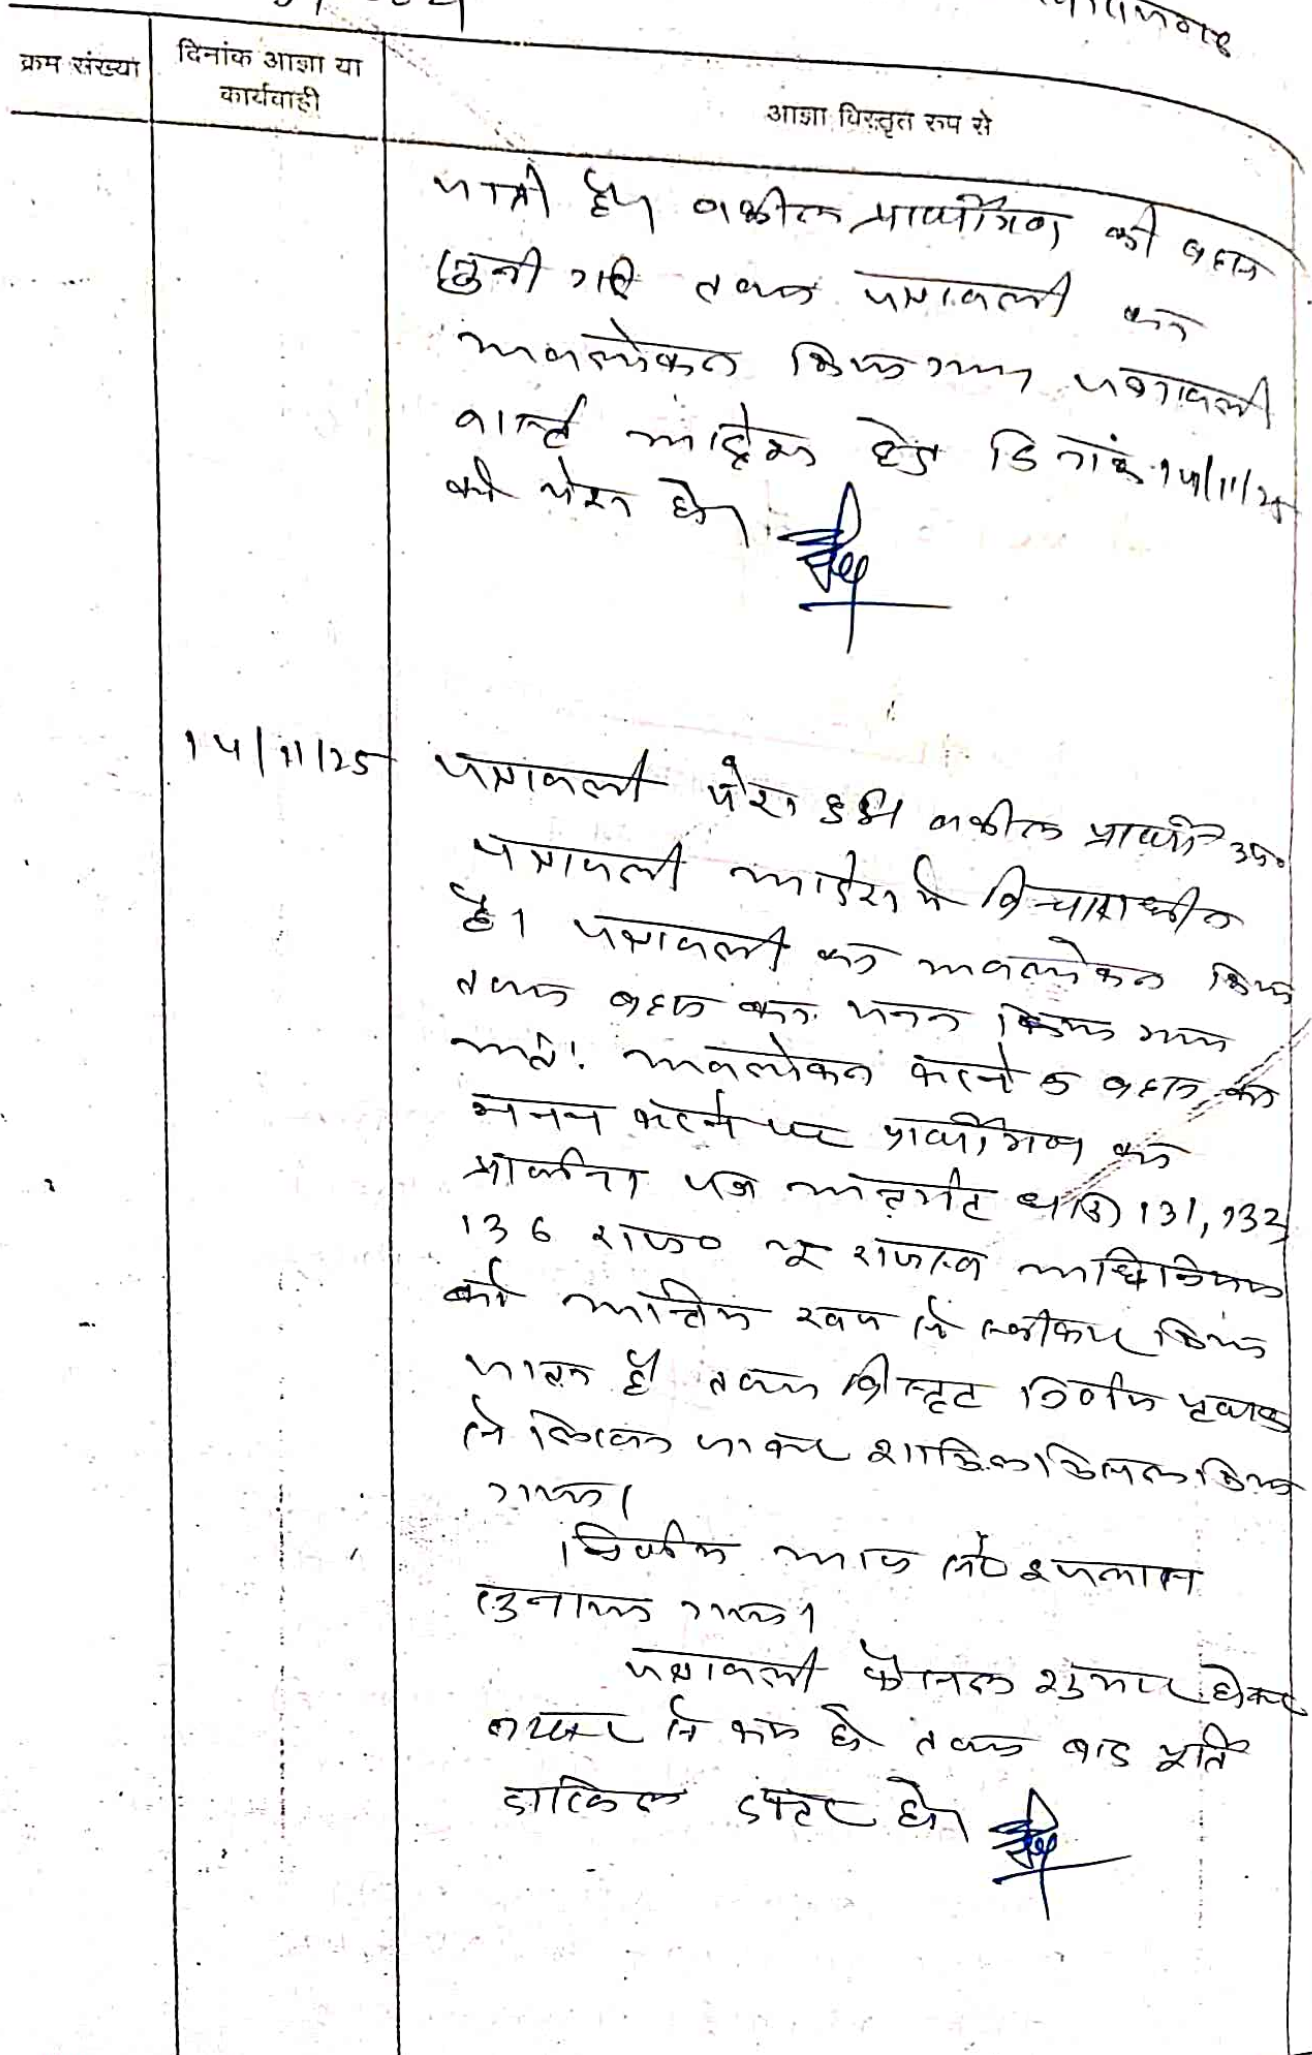 क्रम संख्या
दिनांक आज्ञा या
कार्यवाही
आज्ञा विस्तृत रुप से
जाती है। वकील प्रार्थीगण की बहस
सुनी गई तथा पत्रावली का
अवलोकन किया गया पत्रावली
वास्ते आदेश हेतु दिनांक 14/11/25
को पेश हो।
14/11/25
पत्रावली पेश हुई। वकील प्रार्थी उप०
पत्रावली आदेश में विचाराधीन
है। पत्रावली का अवलोकन किया
तथा बहस का मनन किया गया
अतः अवलोकन करने व बहस का
मनन करने पर प्रार्थीगण का
प्रार्थना पत्र अन्तर्गत धारा 131, 132,
136 राज० भू राजस्व अधिनियम
को आंशिक रूप से स्वीकार किया
जाता है तथा विस्तृत निर्णय पृथक
से लिखा जाकर शामिल मिसल किया
गया।
निर्णय आज सरे इजलास
सुनाया गया।
पत्रावली फैसल शुमार होकर
नम्बर से कम हो तथा बाद पूर्ति
दाखिल दफ्तर हो।